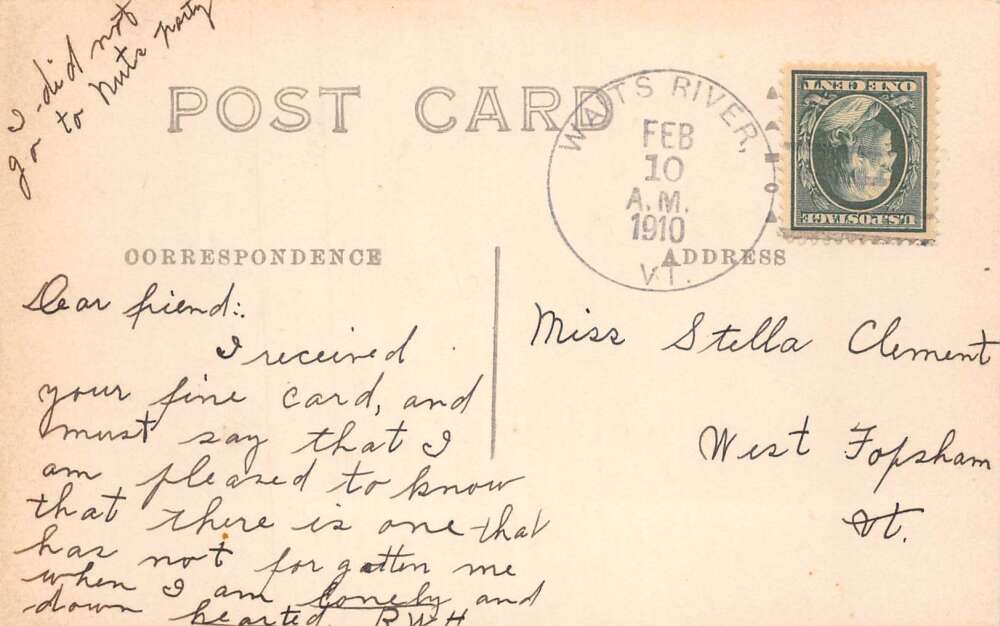 I did not
go to Nuts party
POST CARD
WAITS RIVER,
FEB
10
A.M.
1910
VT.
ONE CENT
U.S. POSTAGE
CORRESPONDENCE
ADDRESS
Dear friend:.
I received
your fine card, and
must say that I
am pleased to know
that there is one that
has not forgotten me
when I am lonely and
down hearted. RWH
Miss Stella Clement
West Topsham
Vt.